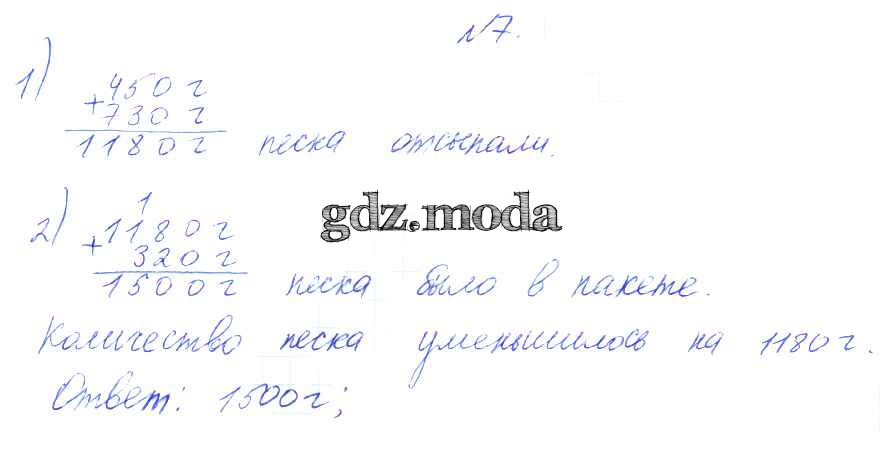 №7.
1) 450 г
+ 730 г
1180 г песка отсыпали.
1
2) 1180 г
+ 320 г
1500 г песка было в пакете.
gdz.moda
Количество песка уменьшилось на 1180 г.
Ответ: 1500 г;